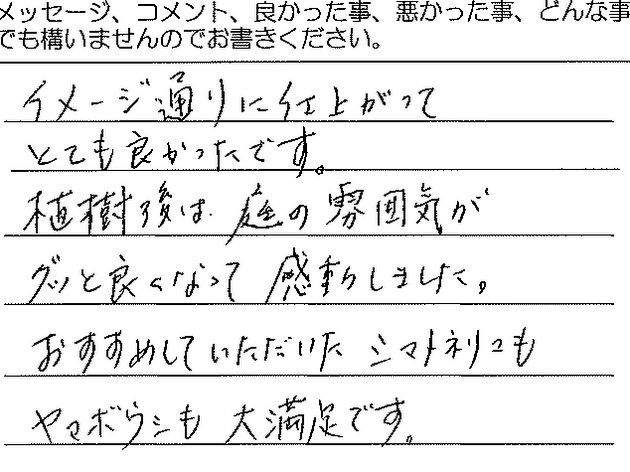 メッセージ、コメント、良かった事、悪かった事、どんな事
でも構いませんのでお書きください。
イメージ通りに仕上がって
とても良かったです。
植樹後は庭の雰囲気が
グッと良くなって感動しました。
おすすめしていただいたシマトネリコも
ヤマボウシも大満足です。